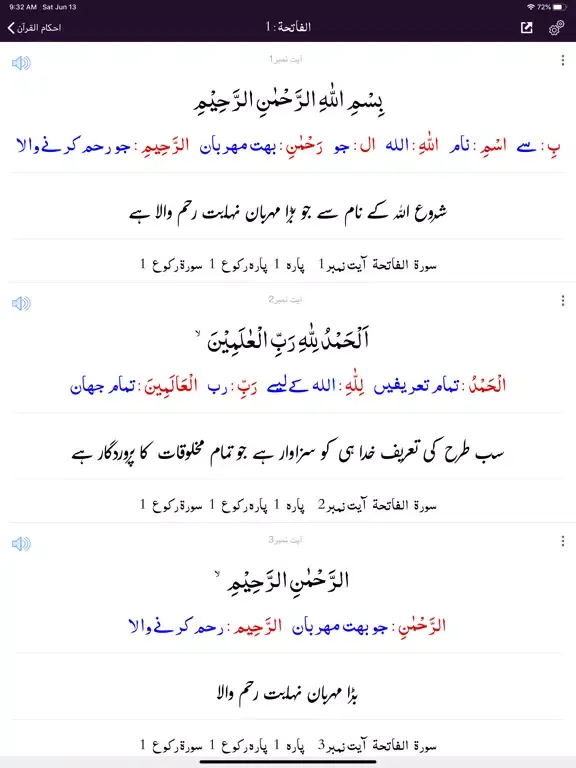 9:32 AM Sat Jun 13 72%
احکام القرآن الفاتحة : 1
آیت نمبر1
بِسْمِ اللّٰهِ الرَّحْمٰنِ الرَّحِیْمِ
بِ: سے اسْمِ: نام اللّٰهِ: الله ال: جو رَحْمٰنِ: بهت مهربان الرَّحِیمِ: جو رحم کرنے والا
شروع الله کے نام سے جو بڑا مہربان نہایت رحم والا ہے
سورة الفاتحة آیت نمبر1 پاره 1 پاره رکوع 1 سورة رکوع 1
آیت نمبر2
اَلْحَمْدُ لِلّٰهِ رَبِّ الْعٰلَمِیْنَ ۙ
الْحَمْدُ: تمام تعریفیں لِلّٰهِ: الله کے لیے رَبِّ: رب الْعَالَمِینَ: تمام جهان
سب طرح کی تعریف خدا ہی کو سزاوار ہے جو تمام مخلوقات کا پروردگار ہے
سورة الفاتحة آیت نمبر2 پاره 1 پاره رکوع 1 سورة رکوع 1
آیت نمبر3
الرَّحْمٰنِ الرَّحِیْمِ ۙ
الرَّحْمٰنِ: جو بهت مهربان الرَّحِیمِ: رحم کرنے والا
بڑا مہربان نہایت رحم والا
سورة الفاتحة آیت نمبر3 پاره 1 پاره رکوع 1 سورة رکوع 1